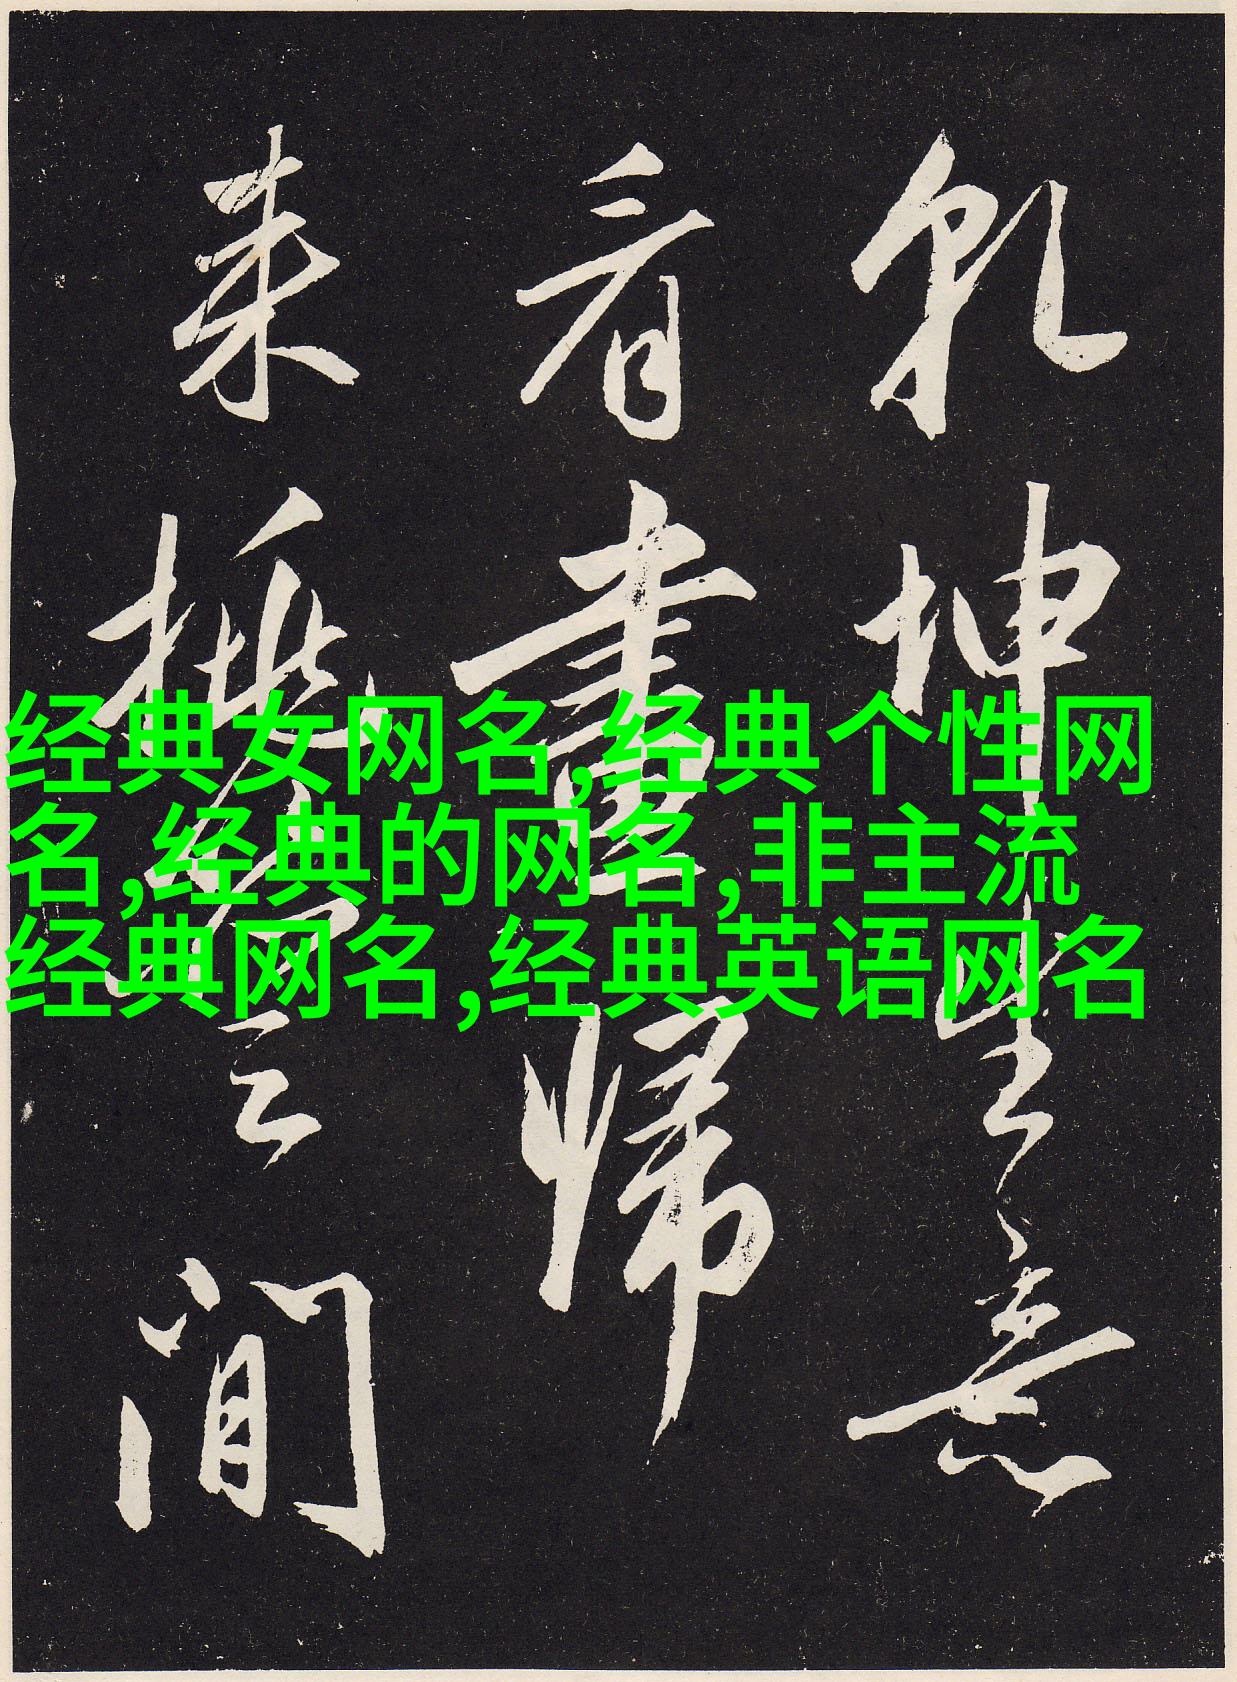 乾坤生意
看畫歸
來
間
经典女网名,经典个性网
名,经典的网名,非主流
经典网名,经典英语网名